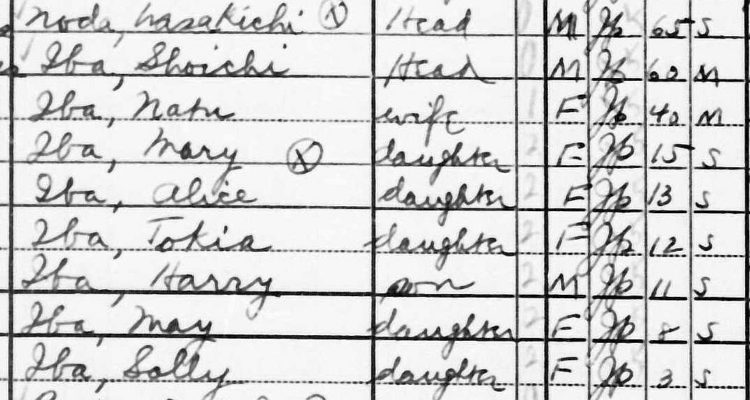 Noda, Masakichi Ⓧ Head M Jp 65 S
Iba, Shoichi Head M Jp 60 M
Iba, Natu wife F Jp 40 M
Iba, Mary Ⓧ daughter F Jp 15 S
Iba, Alice daughter F Jp 13 S
Iba, Tokia daughter F Jp 12 S
Iba, Harry son M Jp 11 S
Iba, May daughter F Jp 8 S
Iba, Sally daughter F Jp 3 S